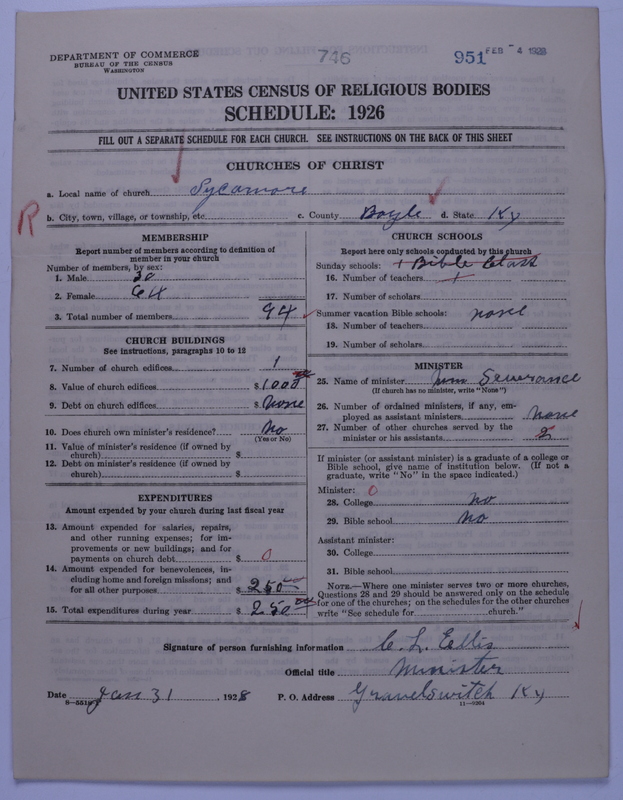 DEPARTMENT OF COMMERCE
BUREAU OF THE CENSUS
WASHINGTON
746
951
FEB - 4 1928
UNITED STATES CENSUS OF RELIGIOUS BODIES
SCHEDULE: 1926
FILL OUT A SEPARATE SCHEDULE FOR EACH CHURCH. SEE INSTRUCTIONS ON THE BACK OF THIS SHEET
CHURCHES OF CHRIST
a. Local name of church Sycamore
R
b. City, town, village, or township, etc. c. County Boyle d. State Ky
MEMBERSHIP
Report number of members according to definition of
member in your church
Number of members, by sex:
1. Male 30
2. Female 64
3. Total number of members 94
CHURCH BUILDINGS
See instructions, paragraphs 10 to 12
7. Number of church edifices 1
8. Value of church edifices $ 1000
9. Debt on church edifices $ None
10. Does church own minister's residence? No
(Yes or No)
11. Value of minister's residence (if owned by
church) $
12. Debt on minister's residence (if owned by
church) $
EXPENDITURES
Amount expended by your church during last fiscal year
13. Amount expended for salaries, repairs,
and other running expenses; for im-
provements or new buildings; and for
payments on church debt $ 0
14. Amount expended for benevolences, in-
cluding home and foreign missions; and
for all other purposes $ 250 00
15. Total expenditures during year $ 250 00
CHURCH SCHOOLS
Report here only schools conducted by this church
Sunday schools: 1 Bible Class
16. Number of teachers 1
17. Number of scholars
Summer vacation Bible schools: none
18. Number of teachers
19. Number of scholars
MINISTER
25. Name of minister Jim Severance
(If church has no minister, write "None")
26. Number of ordained ministers, if any, em-
ployed as assistant ministers None
27. Number of other churches served by the
minister or his assistants 2
If minister (or assistant minister) is a graduate of a college or
Bible school, give name of institution below. (If not a
graduate, write "No" in the space indicated.)
Minister: 0
28. College No
29. Bible school No
Assistant minister:
30. College
31. Bible school
NOTE.—Where one minister serves two or more churches,
Questions 28 and 29 should be answered only on the schedule
for one of the churches; on the schedules for the other churches
write "See schedule for church."
Signature of person furnishing information C. L. Ellis
Official title Minister
Date Jan 31, 1928 P. O. Address Gravelswitch Ky
11—9204